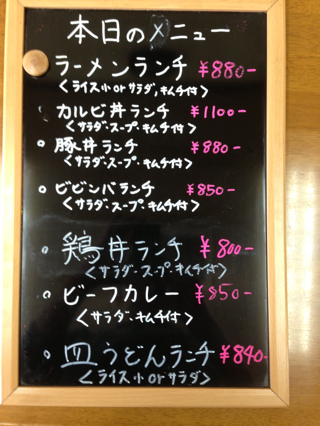 本日のメニュー
ラーメンランチ ¥880-
<ライス小orサラダ,キムチ付>
カルビ丼ランチ ¥1100-
<サラダ・スープ・キムチ付>
○ 豚丼ランチ ¥880-
<サラダ・スープ・キムチ付>
○ ビビンバランチ ¥850-
<サラダ・スープ・キムチ付>
○ 鶏丼ランチ ¥800-
<サラダ・スープ・キムチ付>
○ ビーフカレー ¥850-
<サラダ・キムチ付>
○ 皿うどんランチ ¥840-
<ライス小orサラダ>